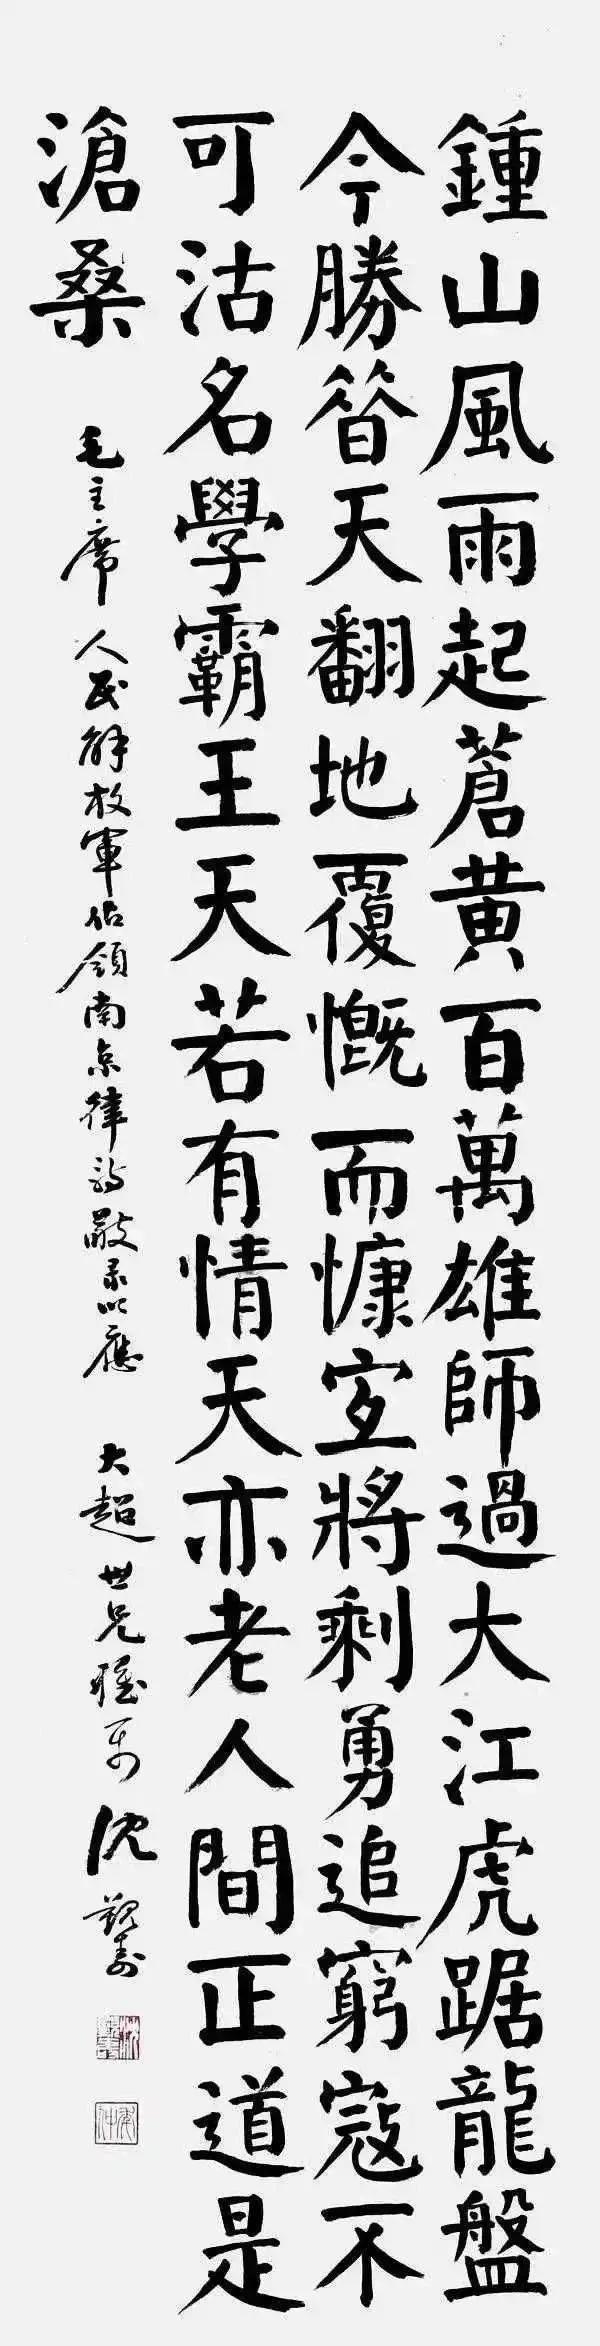 鍾山風雨起蒼黄百萬雄師過大江虎踞龍盤
今勝昔天翻地覆慨而慷宜將剩勇追窮寇不
可沽名學霸王天若有情天亦老人間正道是
滄桑 毛主席人民解放軍佔領南京律詩敬录以應 大超世兄雅属 沈覲壽